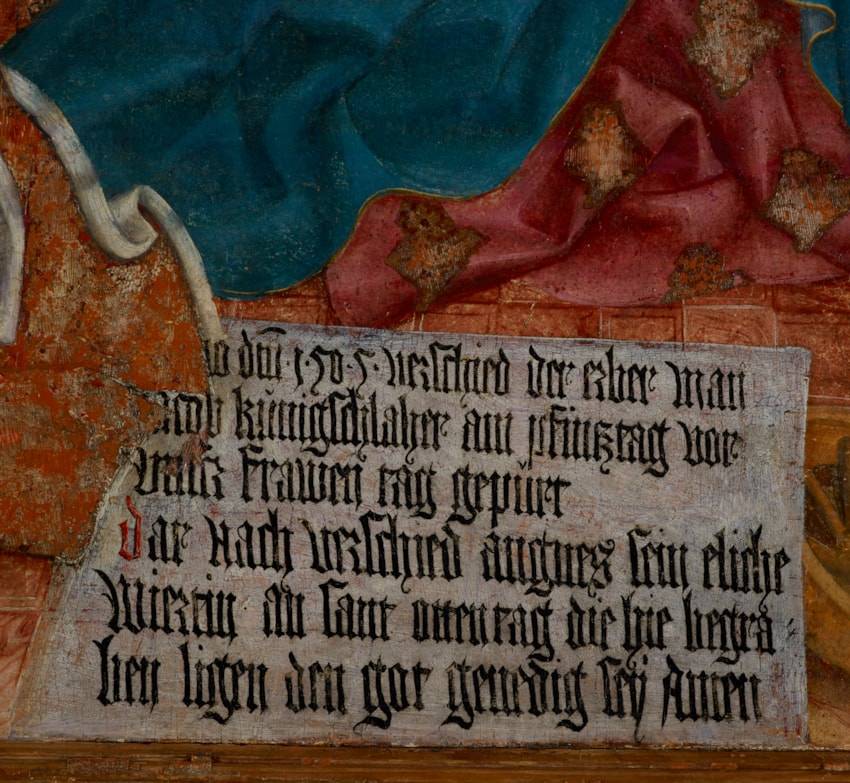 dm̄ · 1 · 50 · 5 · verschied der erber man
kunigschlaher am pfintztag vor
vnsr frawen tag gepürt
dar nach verschied angnes sein eliche
wirtin an sant ottentag die hie begra
ben ligen den got genedig seÿ Amen